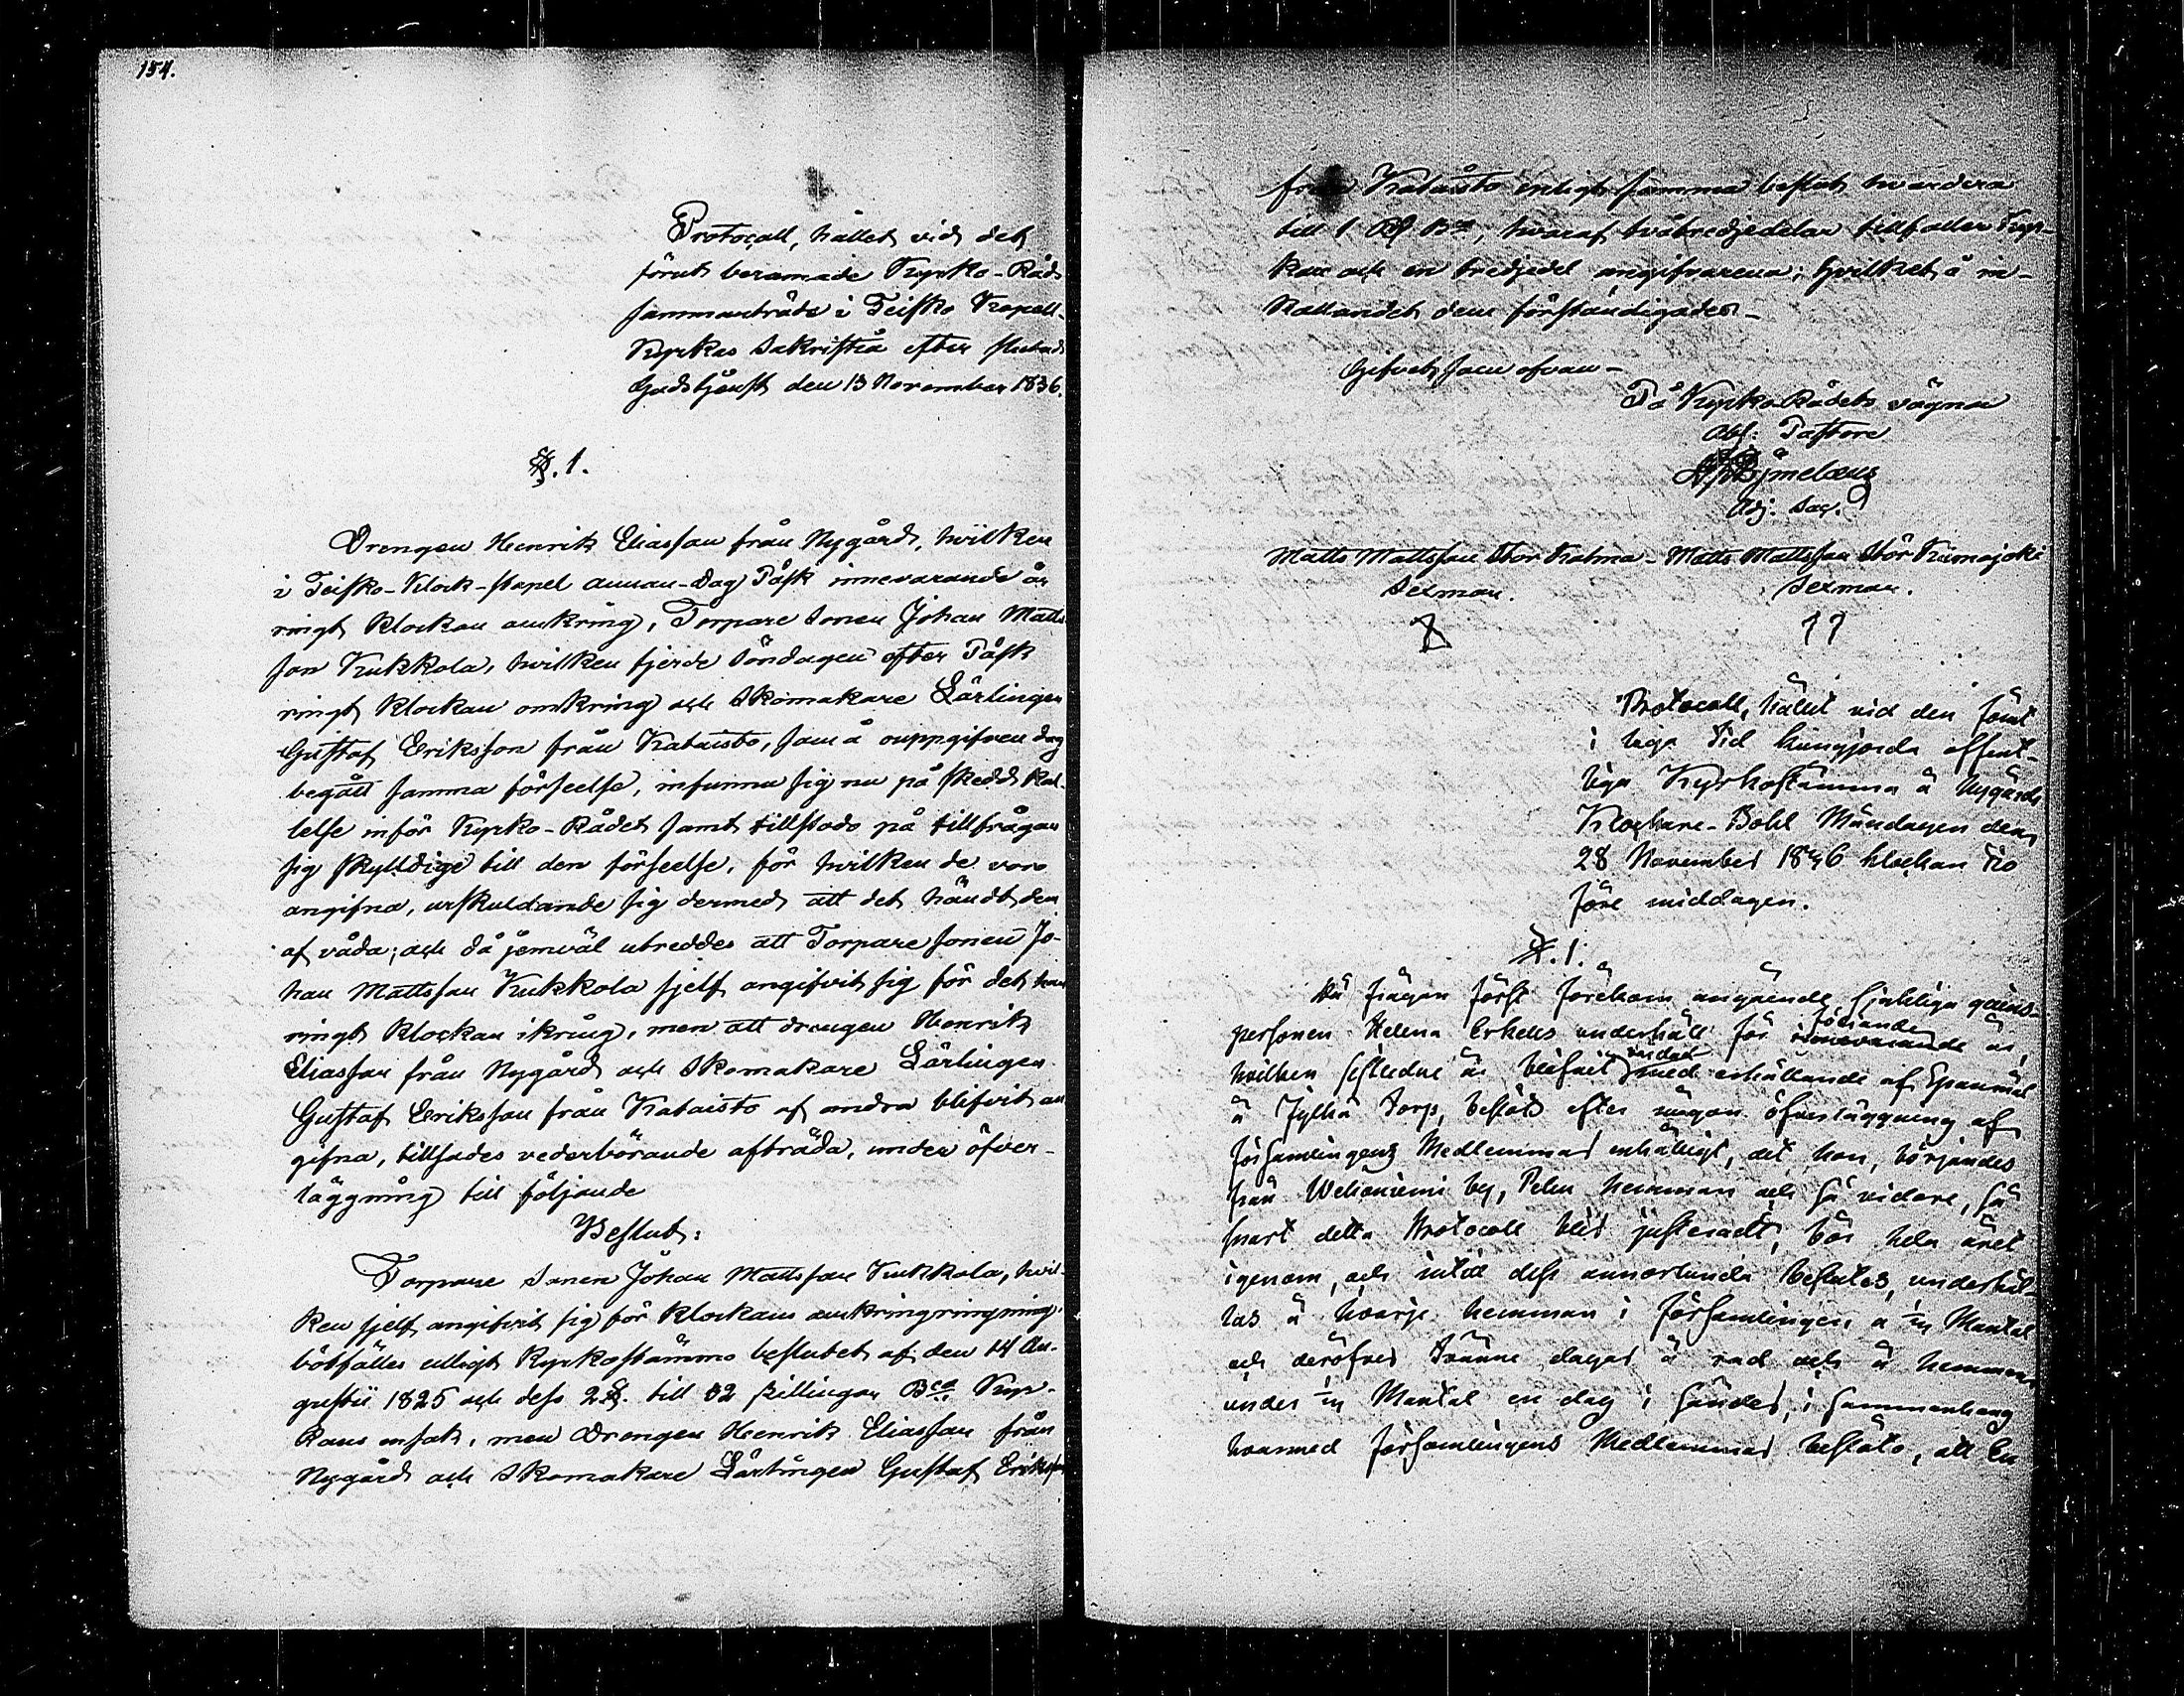 154.
Protocoll, hållet vid det
förut beramade Kyrko-Råds
sammanträde i Teisko Kapell-
Kyrkas Sakristia efter slutad
Gudstjenst den 13 November 1836.
§. 1.
Drengen Henrik Eliasson från Nygård, hvilken
i Teisko-Klock-stapel annan-dag Påsk innevarande år
ringt klockan omkring, Torpare Sonen Johan Matts
son Kukkola, hvilken fjerde Söndagen efter Påsk
ringt klockan omkring och Skomakare Lärlingen
Gustaf Eriksson från Kataisto, som å ouppgifven dag
begått samma förseelse, infunno sig nu på skedd kal-
lelse inför Kyrko-Rådet samt tillstodo på tillfrågan
sig skyldige till den förseelse, för hvilken de voro
angifna, urskuldande sig dermed att det händt dem
af våda; och då jemväl utreddes att Torpare sonen Jo-
han Mattsson Kukkola sjelf angifvit sig för det han
ringt klockan ikring, men att drengen Henrik
Eliasson från Nygård och Skomakare Lärlingen
Gustaf Eriksson från Kataisto af andra blifvit an
gifna, tillsades vederbörande afträda, under öfver-
läggning till följande
Beslut:
Torpare Sonen Johan Mattsson Kukkola, hvil-
ken sjelf angifvit sig för klockans omkringringning
bötfälles enligt Kyrkostämmo beslutet af den 14 Au-
gustii 1825 och dess 2 §. till 32 skillingar Bco Kyr-
kans ensak, men Drengen Henrik Eliasson från
Nygård och Skomakare Lärlingen Gustaf Eriksson
från Kataisto enligt samma beslut hvardera
till 1 Rd Bco, hvaraf tvåtredjedelar tillfaller Kyr-
kan och en tredjedel angifvarena; hvilket å in-
kallandet dem förständigades.
Gifvet, som ofvan
På Kyrko Rådets vägnar
Abr: Pastore
Adj. Sac.
Matts Mattsson Stor Kalma - Matts Mattsson Stör Kiimajoki
Sexman. Sexman.
Protocoll, hållit vid den samt
i laga Tid kungjorda offent-
liga Kyrkostämma å Nygårds
Klockare-Bohl Måndagen den
28 November 1836 klockan Tio
före middagen.
§. 1.
Då frågan först förekom angående sjukliga qvins-
personen Helena Erkells underhåll för innevarande år, följande
hvilken sistledne år blifvit endast med erhållande af Spannmål
å Jylhä Torp, beslöts efter någon öfverläggning af
församlingens Medlemmar enhälligt, att hon, börjandes
från Weltoniemi by, Pelin hemman och så vidare, så
snart detta Protocoll blir justeradt, bör hela året
igenom, och intill dess annorlunda beslutes, underhål-
las å hvarje hemman i församlingen a 1/4 Mantal
och deröfver Tvänne dagar å rad och å hemman
under 1/4 Mantal en dag i sänder, i sammanhang
hvarmed församlingens Medlemmar beslöto, att En